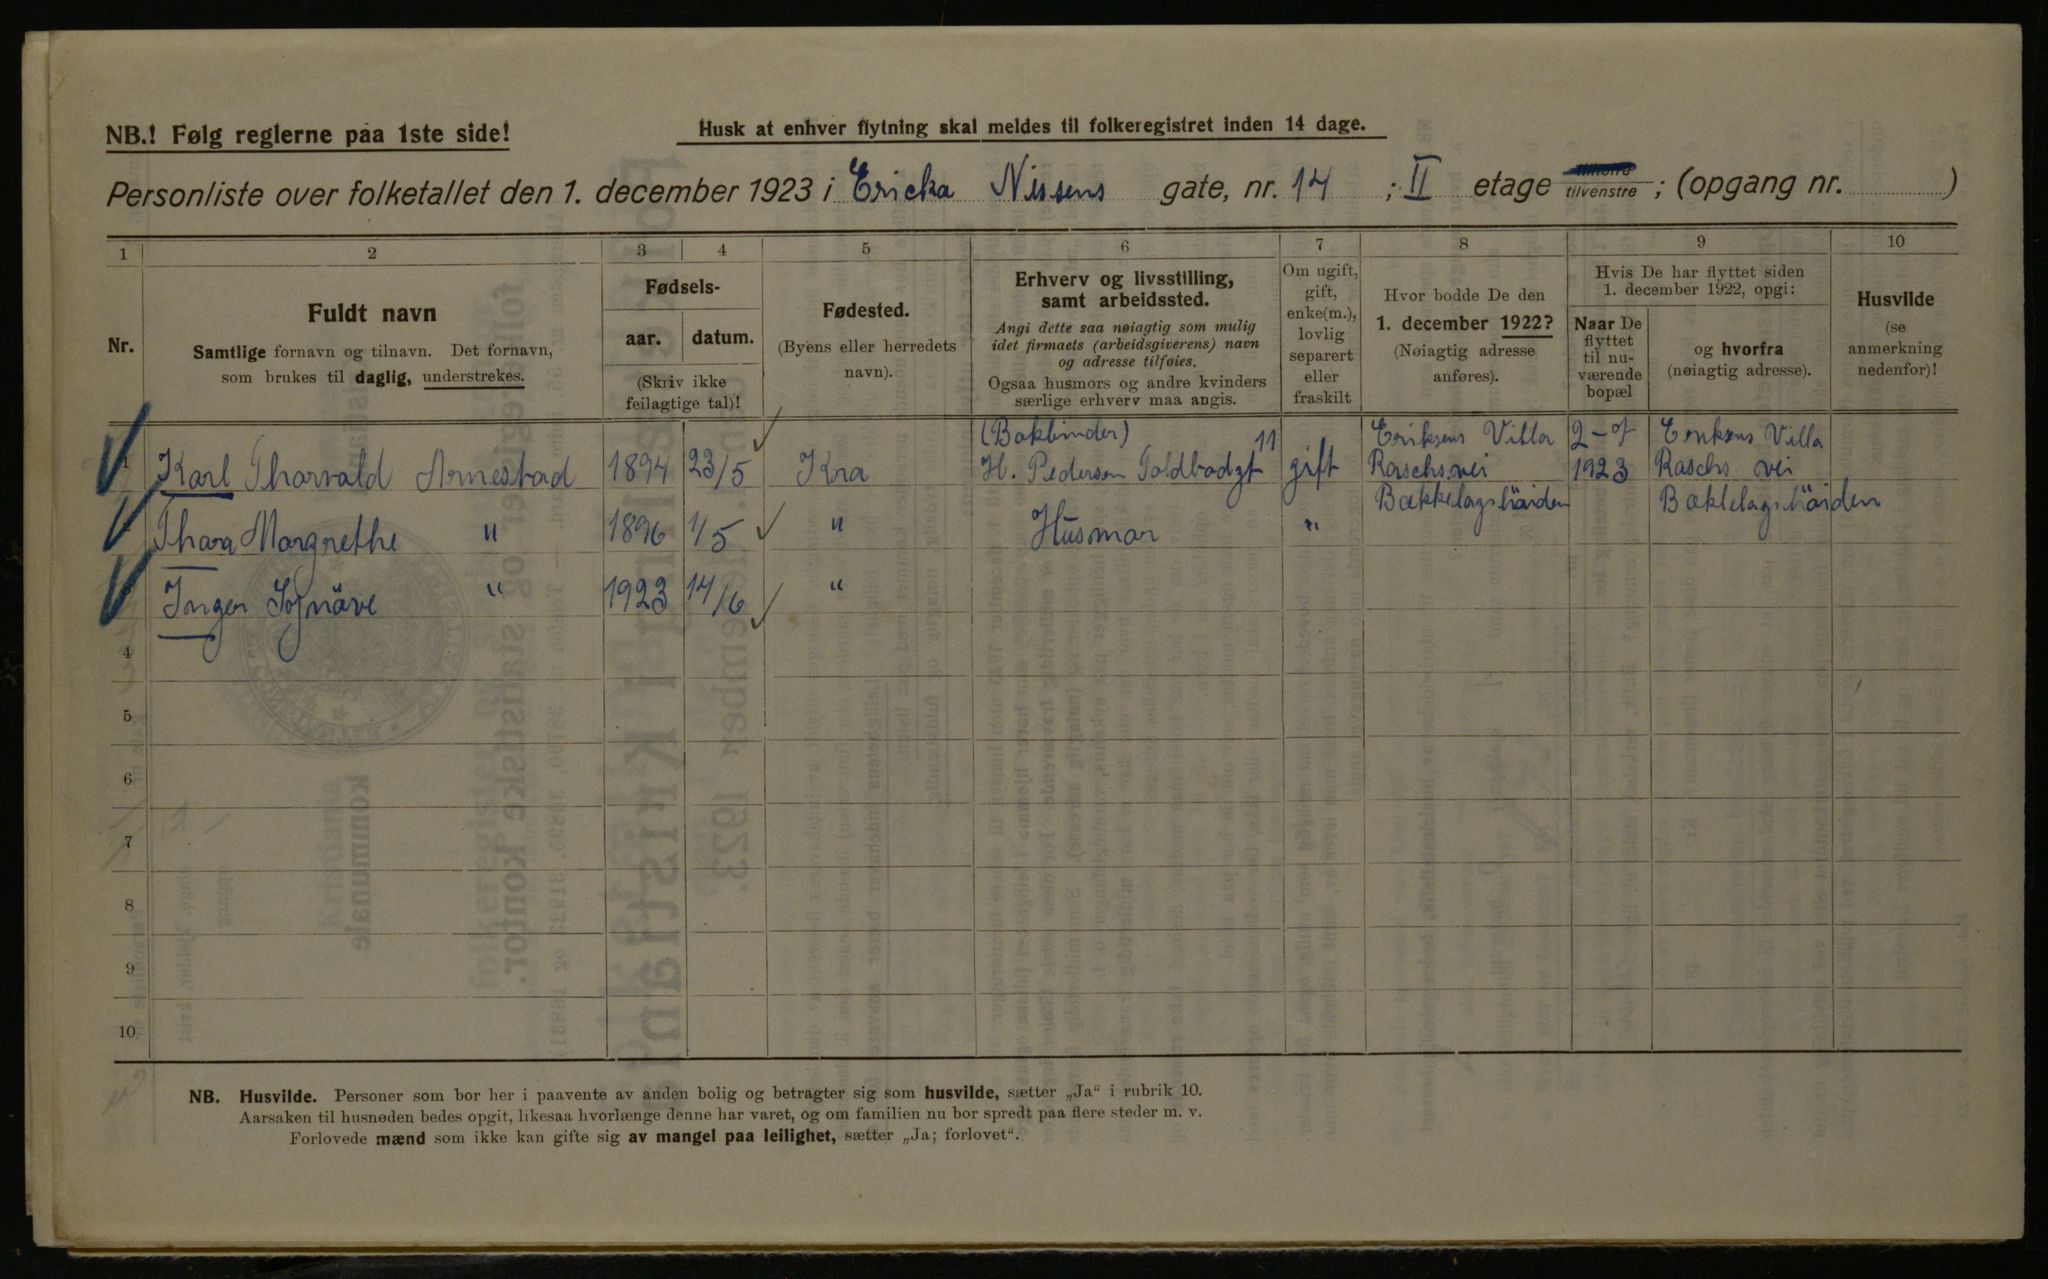 NB.! Følg reglerne paa 1ste side!
Husk at enhver flytning skal meldes til folkeregistret inden 14 dage.
Personliste over folketallet den 1. december 1923 i Ericka Nissens gate, nr. 14 ; II etage tilhøire tilvenstre ; (opgang nr. )
1 2 3 4 5 6 7 8 9 10
Nr.
Fuldt navn
Samtlige fornavn og tilnavn. Det fornavn,
som brukes til daglig, understrekes.
Fødsels-
aar. datum.
(Skriv ikke
feilagtige tal)!
Fødested.
(Byens eller herredets
navn).
Erhverv og livsstilling,
samt arbeidssted.
Angi dette saa nøiagtig som mulig
idet firmaets (arbeidsgiverens) navn
og adresse tilføies.
Ogsaa husmors og andre kvinders
særlige erhverv maa angis.
Om ugift,
gift,
enke(m.),
lovlig
separert
eller
fraskilt
Hvor bodde De den
1. december 1922?
(Nøiagtig adresse
anføres).
Hvis De har flyttet siden
1. december 1922, opgi:
Naar De
flyttet
til nu-
værende
bopæl
og hvorfra
(nøiagtig adresse).
Husvilde
(se
anmerkning
nedenfor)!
(Bokbinder) 11 Eriksens Villa 2- Eriksens Villa
1 Karl Thorvald Arnestad 1894 23/5 Kra H. Pedersen Toldbodgt gift Raschs. vei 1923 Raschs. vei
Bækkelagshöiden Bæklelagshöiden
Thora Margrethe " 1896 1/5 " Husmor "
Inger Sygnöve " 1923 14/6 "
4
5
6
7
8
9
10
NB. Husvilde. Personer som bor her i paavente av anden bolig og betragter sig som husvilde, sætter „Ja“ i rubrik 10.
Aarsaken til husnøden bedes opgit, likesaa hvorlænge denne har varet, og om familien nu bor spredt paa flere steder m. v.
Forlovede mænd som ikke kan gifte sig av mangel paa leilighet, sætter „Ja; forlovet“.